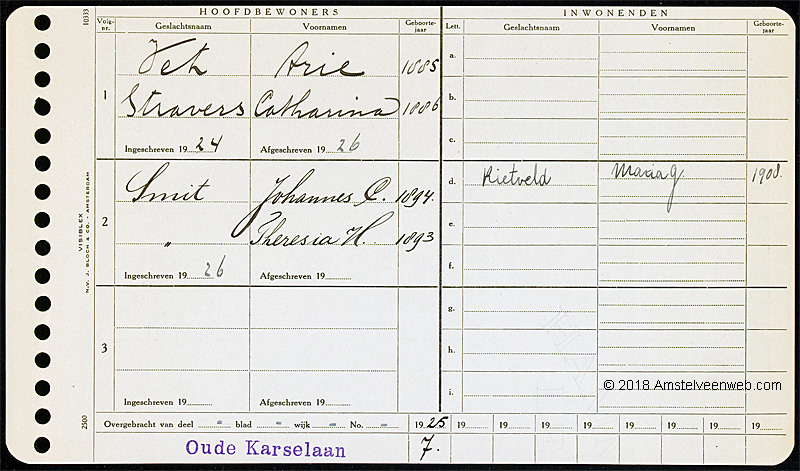 HOOFDBEWONERS INWONENDEN
Volg-nr. Geslachtsnaam Voornamen Geboorte-jaar Lett. Geslachtsnaam Voornamen Geboorte-jaar
10333
1 Vet Arie 1885 a.
Stravers Catharina 1886 b.
Ingeschreven 1924 Afgeschreven 1926 c.
Smit Johannes C. 1894. d. Rietveld Maria G 1908.
2 e.
" Theresia H. 1893
Ingeschreven 1926 Afgeschreven 19 f.
VISIBLEX
N.V. J. BLOCH & CO. - AMSTERDAM
g.
3 h.
Ingeschreven 19 Afgeschreven 19 i.
© 2018 Amstelveenweb.com
2500
Overgebracht van deel " blad " wijk " No. " 1925 19 19 19 19 19 19 19 19
Oude Karselaan 7.